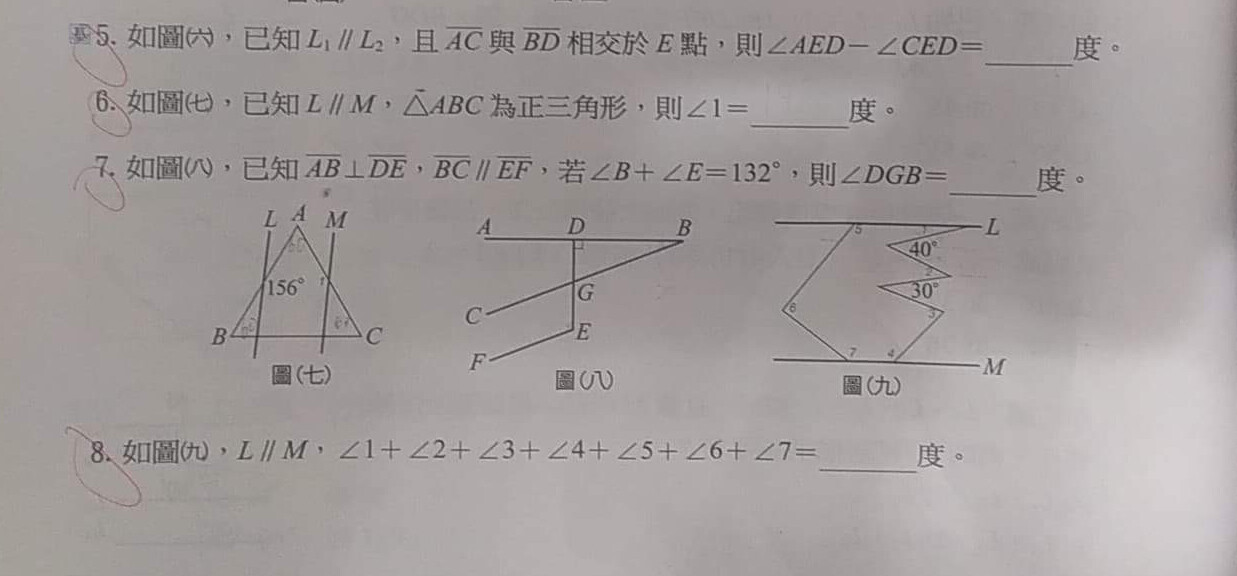 基5. 如圖㈥，已知 L₁ // L₂，且 AC 與 BD 相交於 E 點，則∠AED－∠CED＝______度。
6. 如圖㈦，已知 L // M，△ABC 為正三角形，則∠1＝______度。
7. 如圖㈧，已知 AB⊥DE，BC // EF，若∠B＋∠E＝132°，則∠DGB＝______度。
L A M
156°
1
B C
圖㈦
A D B
G
C
E
F
圖㈧
5 1 L
40°
2
30°
6 3
7 4 M
圖㈨
8. 如圖㈨，L // M，∠1＋∠2＋∠3＋∠4＋∠5＋∠6＋∠7＝______度。